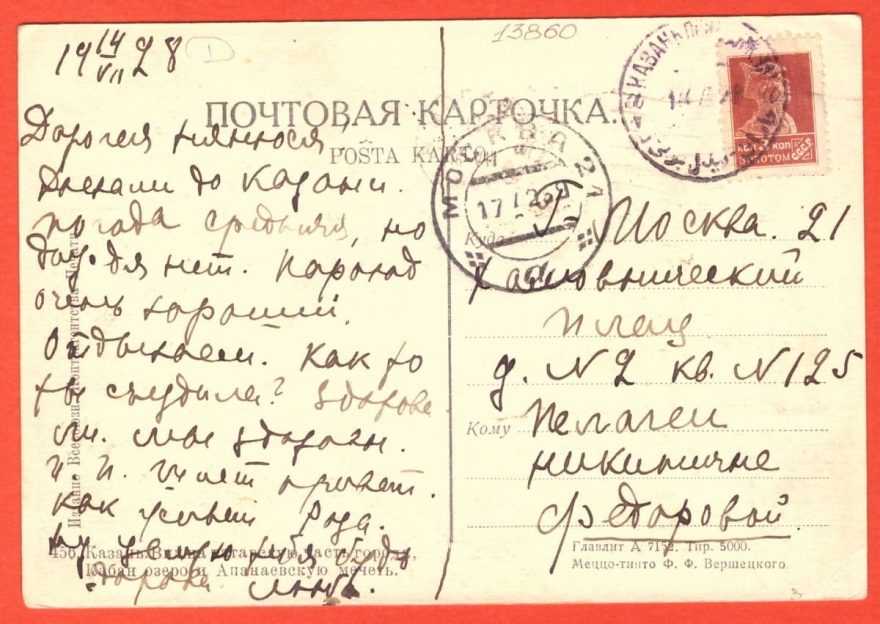 13860
19 14/VII 28
ПОЧТОВАЯ КАРТОЧКА.
POSTA KARTOCH
Дорогая нянюся,
Доехали до Казани.
погода средняя, но
дождя нет. Пароход
очень хороший.
Отдыхаем. Как то
ты съездила? Здорова
ли. мы здоровы.
И. И. шлет привет.
как Рода.
Ну целую тебя будь
здорова. Люба.
Издание Всесоюзн. Контрагентства Печати
456. Казань. Вид на татарскую часть города,
Кабан озеро и Апанаевскую мечеть.
КАЗАНЬ
14 28
3 КОП
ЗОЛОТОМ
СССР
МОСКВА 21
17 28
Куда
Москва. 21
Хамовнический
плац
д. N 2 кв. N 125
Кому
Пелагеи
Никитичне
Федоровой.
Главлит А 7152. Тир. 5000.
Меццо-тинто Ф. Ф. Вершецкого.